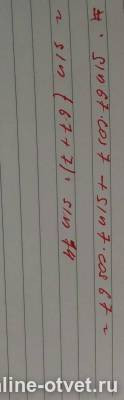 # · sin 67 · cos 7 + sin 7 · cos 67 =
= sin (67 + 7) · sin 74
online-otvet.ru